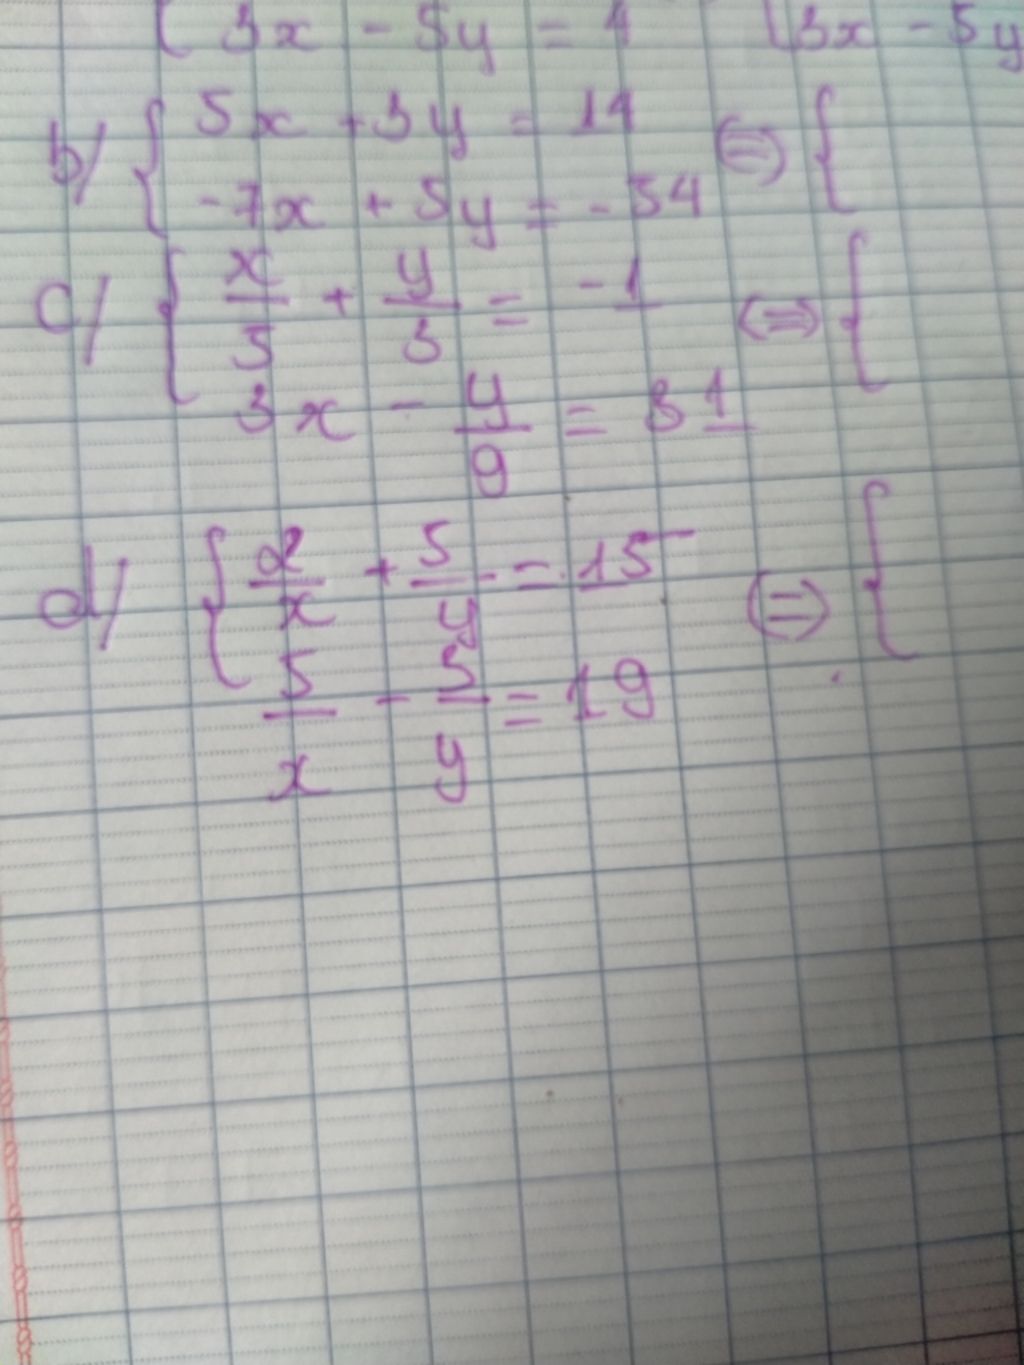 3x - 5y = 4 3x - 5y
b/ { 5x + 3y = 14 ⇔ {
-7x + 5y = -54
c/ { x/5 + y/3 = -1 ⇔ {
3x - y/9 = 31
d/ { 2/x + 5/y = 15 ⇔ {
5/x - 5/y = 19